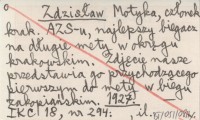 Zdzisław Motyka, członek
krak. AZS-u, najlepszy biegacz
na długie mety w okręgu
krakowskim. Zdjęcie nasze
przedstawia go przychodzącego
pierwszym do mety w biegu
zakopiańskim. 1927.
IKC 18, nr 294. il.